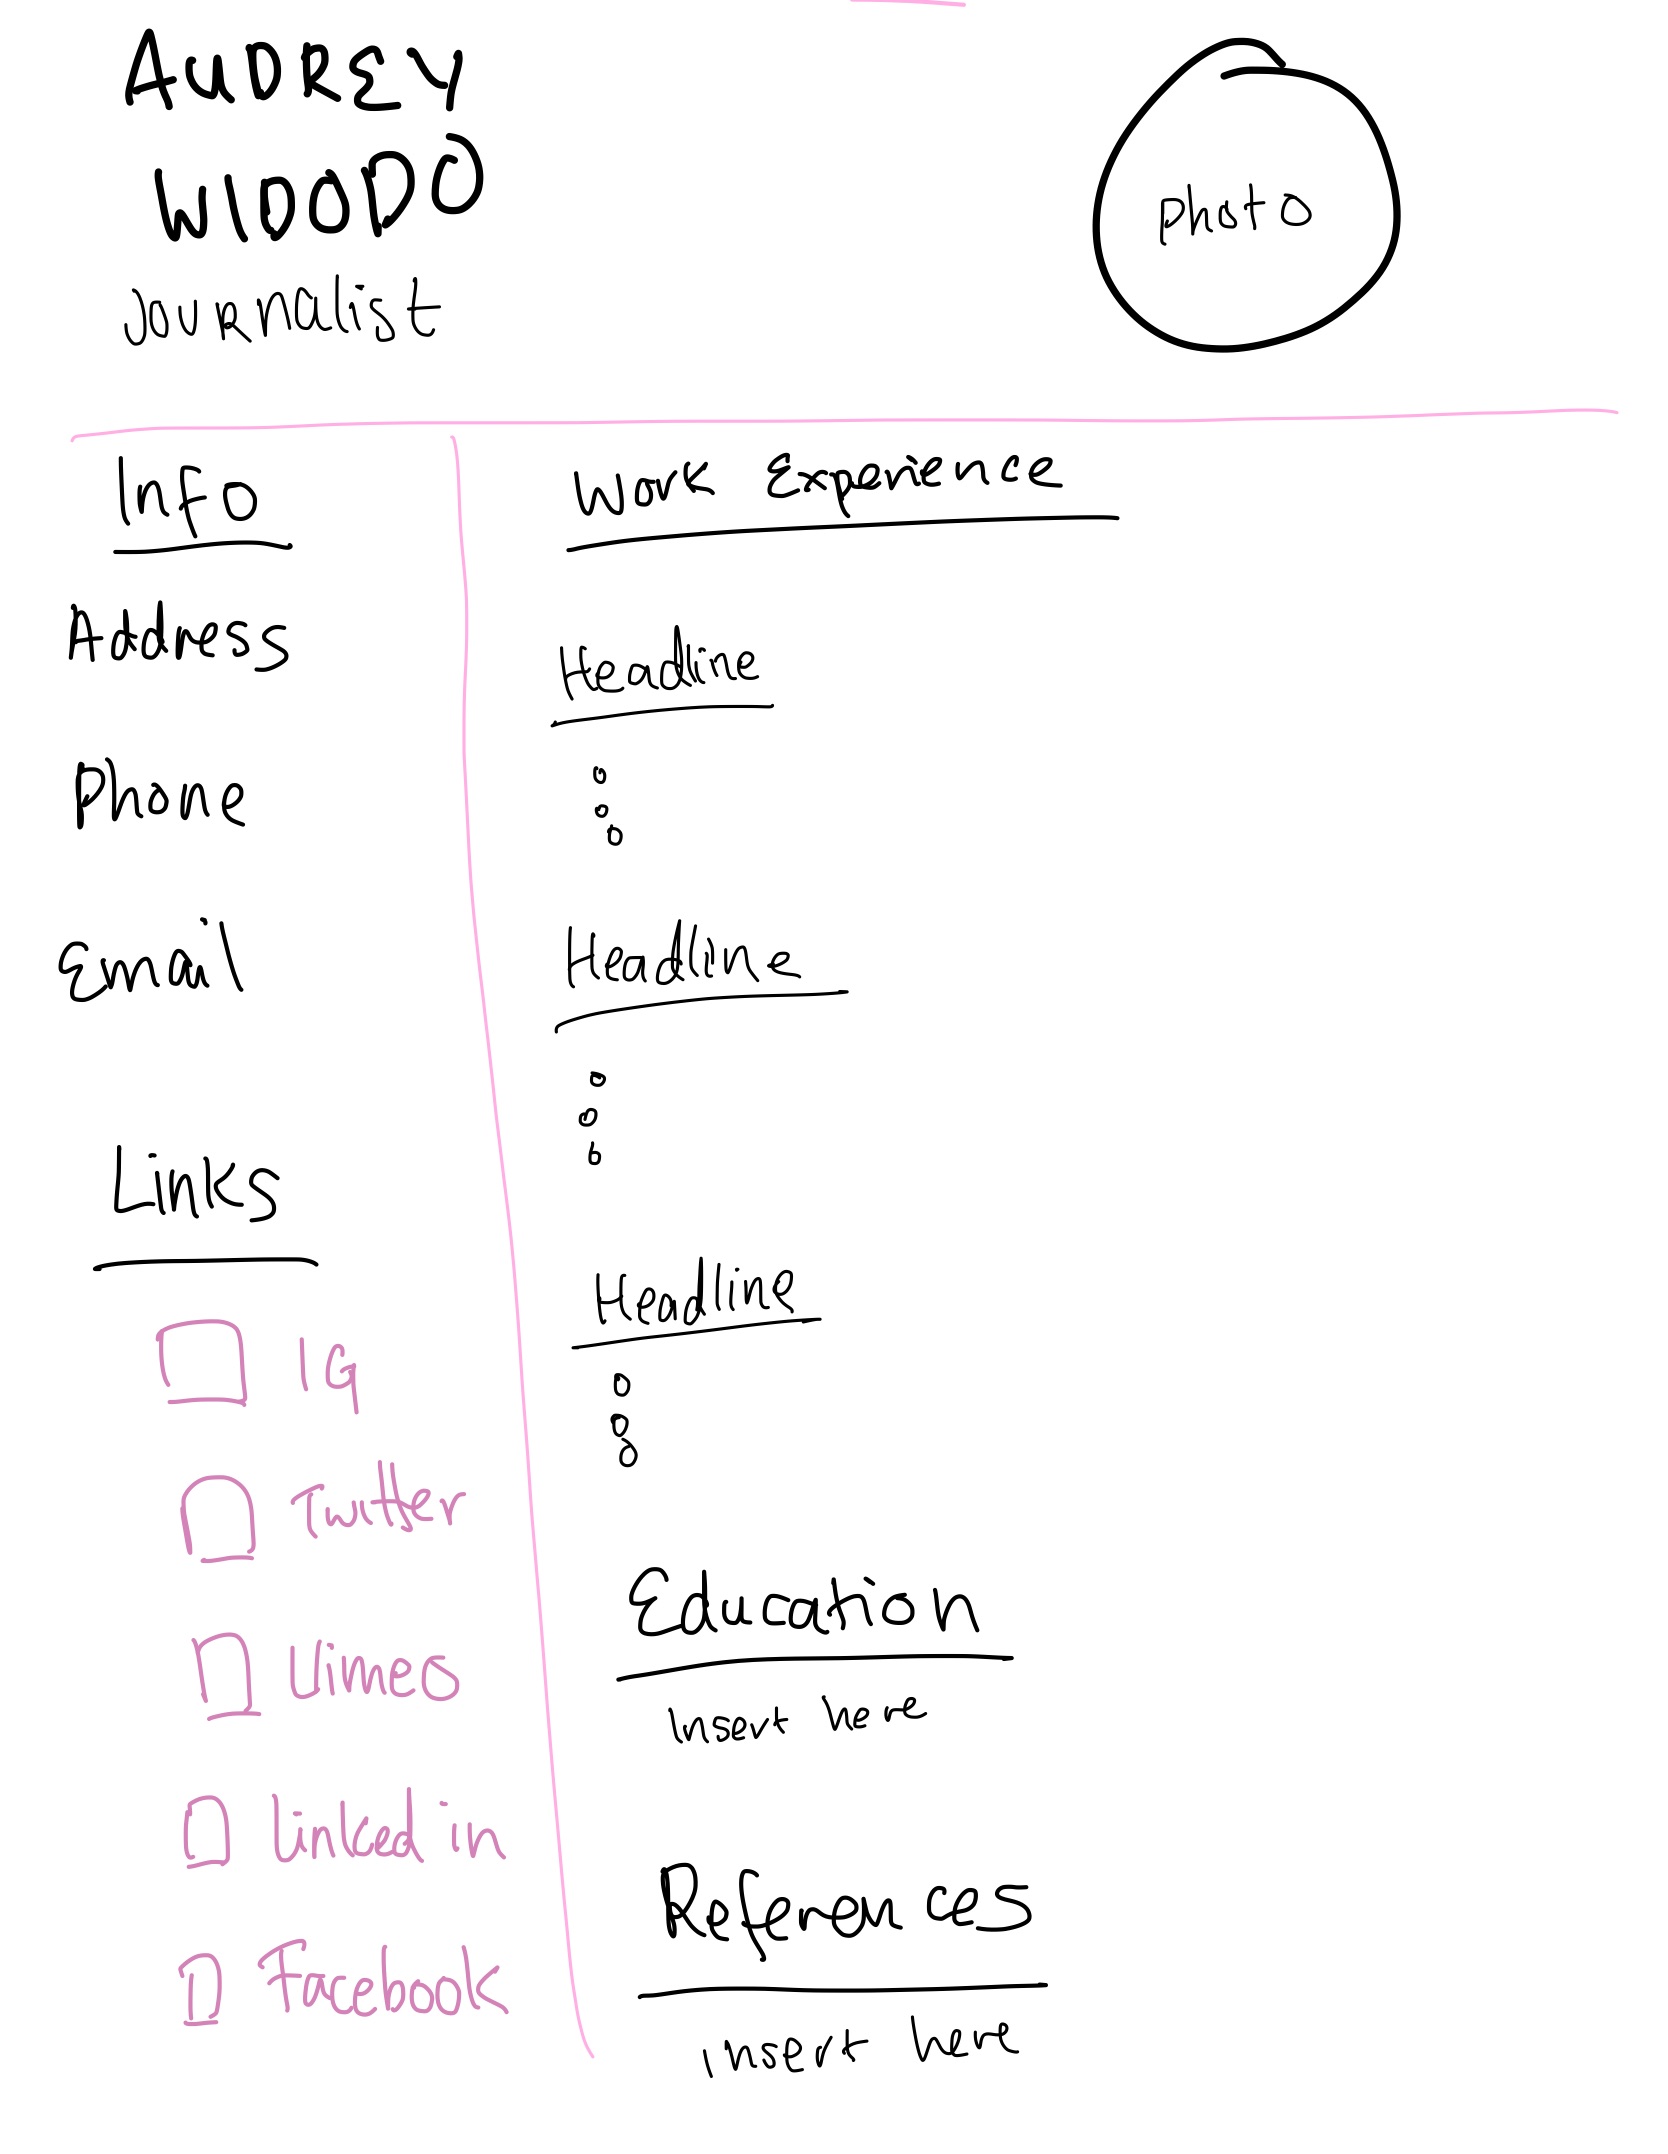 AUDREY
WIDODO
Journalist
photo
Info
Address
Phone
Email
Links
IG
Twitter
Vimeo
Linked in
Facebook
Work Experience
Headline
Headline
Headline
Education
Insert here
References
insert here